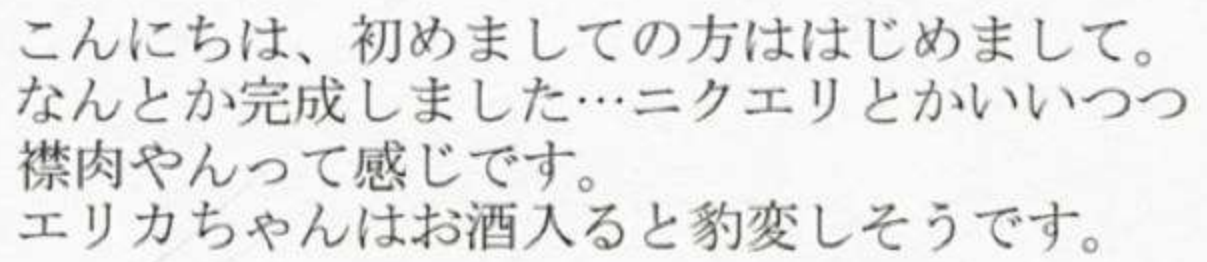 こんにちは、初めましての方ははじめまして。
なんとか完成しました…ニクエリとかいいつつ
襟肉やんって感じです。
エリカちゃんはお酒入ると豹変しそうです。